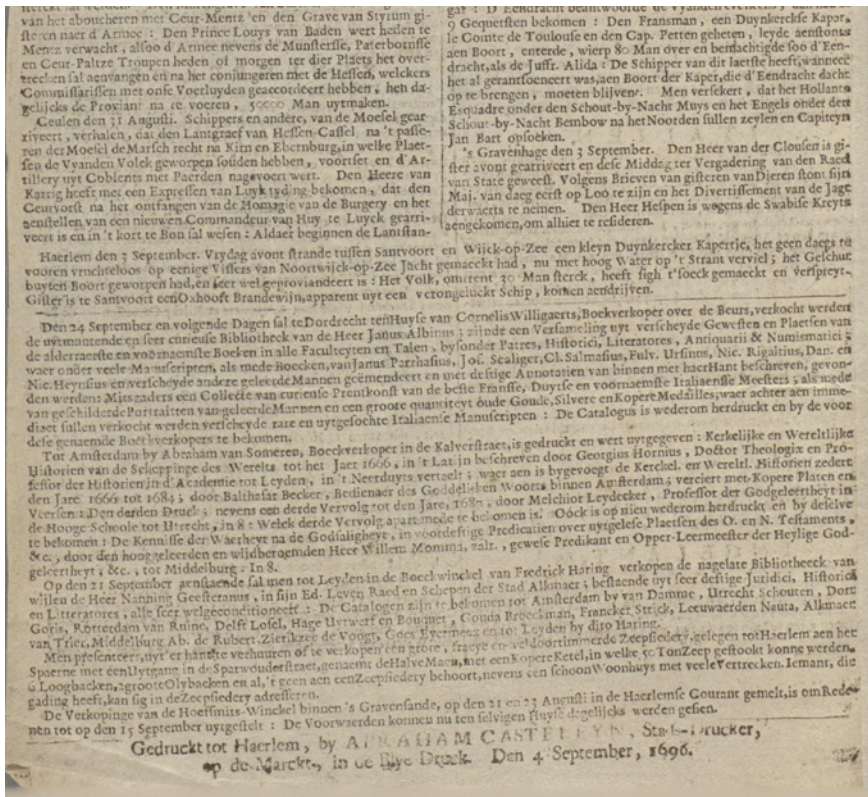 van het aboucheren met Ceur-Mentz en den Grave van Styrum gi-
steren naer d'Armee : Den Prince Louys van Baden wert heden te
Mentz verwacht, alsoo d'Armee nevens de Munsterse, Paterbornsse
en Ceur-Paltze Troupen heden of morgen ter dier Plaets het over-
trecken sal aenvangen en na het conjungeren met de Hessen, welckers
Commissarissen met onse Voerluyden geaccordeert hebben, hen da-
gelijcks de Proviant na te voeren, 50000 Man uytmaken.
Ceulen den 31 Augusti. Schippers en andere, van de Mosel gear-
riveert, verhalen, dat den Lantgraef van Hessen-Cassel na 't passe-
ren der Mosel de Marsch recht na Kirn en Ebernburg, in welke Plaet-
sen de Vyanden Volck geworpen souden hebben, voortset en d'Ar-
tillery uyt Coblents met Paerden nagevoert wert. Den Heere van
Karrig heeft met een Expressen van Luyk tyding bekomen, dat den
Ceurvorst na het ontfangen van de Homagie van de Burgery en het
aenstellen van een nieuwen Commandeur van Huy te Luyck gearri-
veert is en in 't kort te Bon sal wesen : Aldaer beginnen de Lantstan-
gar : D'Eendracht beantwoorde de Vyanden
9 Gequetsten bekomen : Den Fransman, een Duynkerckse Kaper,
le Comte de Toulouse en den Cap. Petten geheten, leyde aenstonts
aen Boort, enterde, wierp 80 Man over en bemachtigde soo d'Een-
dracht, als de Juffr. Alida : De Schipper van dit laetste heeft, wanneer
het al gerantsoeneert was, aen Boort der Kaper, die d'Eendracht dacht
op te brengen, moeten blijven. Men versekert, dat het Hollants
Esquadre onder den Schout-by-Nacht Muys en het Engels onder den
Schout-by-Nacht Bembow na het Noorden sullen zeylen en Capiteyn
Jan Bart opsoeken.
's Gravenhage den 3 September. Den Heer van der Clousen is gi-
ster avont gearriveert en dese Middag ter Vergadering van den Raed
van State geweest. Volgens Brieven van gisteren van Dieren stont sijn
Maj. van daeg eerst op Loo te zijn en het Divertissement van de Jagt
derwaerts te nemen. Den Heer Hespen is wegens de Swabise Kreyts
aengekomen, om alhier te resideren.
Haerlem den 3 September. Vrydag avont strande tussen Santvoort en Wijck-op-Zee een kleyn Duynkercker Kapertje, het geen daegs te
vooren vruchteloos op eenige Vissers van Noortwijck-op-Zee Jacht gemaeckt had, nu met hoog Water op 't Strant verviel ; het Geschut
buyten Boort geworpen had, en seer wel geproviandeert is : Het Volk, omtrent 30 Man sterck, heeft sigh t'soeck gemaeckt en verspreyt.
Gister is te Santvoort een Oxhooft Brandewijn, apparent uyt een verongeluckt Schip, komen aendrijven.
Den 24 September en volgende Dagen sal te Dordrecht ten Huyse van Cornelis Willigaerts, Boekverkoper over de Beurs, verkocht werden
de uytmuntende en seer curieuse Bibliotheeck van de Heer Janus Albinus ; zijnde een Versameling uyt verscheyde Gewesten en Plaetsen van
de alderraerste en voornaemste Boeken in alle Faculteyten en Talen, bysonder Patres, Historici, Literatores, Antiquarii & Numismatici ;
waer onder veele Manuscripten, als mede Boecken, van Janus Parrhasius, Jos. Scaliger, Cl. Salmasius, Fulv. Ursinus, Nic. Rigaltius, Dan. en
Nic. Heynsius en verscheyde andere geleerde Mannen geëmendeert en met deftige Annotatien van binnen met haer Hant beschreven, gevon-
den werden : Mitsgaders een Collectie van curieuse Prentkonst van de beste Franse, Duytse en voornaemste Italiaensse Meesters ; als mede
van geschilderde Portraitten van geleerde Mannen en een groote quantiteyt oude Goude, Silvere en Kopere Medailles ; waer achter aen imme-
diaet sullen verkocht werden verscheyde rare en uytgesochte Italiaense Manuscripten : De Catalogus is wederom herdruckt en by de voor
dese genaemde Boekverkopers te bekomen.
Tot Amsterdam by Abraham van Someren, Boeckverkoper in de Kalverstraet, is gedruckt en wert uytgegeven : Kerkelijke en Wereltlijke
Historien van de Scheppinge des Werelts tot het Jaer 1666, in 't Latijn beschreven door Georgius Hornius, Doctor Theologiæ en Pro-
fessor der Historien in d'Academie tot Leyden, in 't Neerduyts vertaelt ; waer aen is bygevoegt de Kerckel. en Wereltl. Historien zedert
den Jare 1666 tot 1684 ; door Balthasar Becker, Bedienaer des Goddelijken Woorts binnen Amsterdam ; verciert met Kopere Platen en
Veersen : Den derden Druck ; nevens een derde Vervolg tot den Jare, 1687, door Melchior Leydecker, Professor der Godgeleertheyt in
de Hooge Schoole tot Utrecht, in 8 : Welck derde Vervolg apart mede te bekomen is. Oock is op nieu wederom herdruckt en by deselve
te bekomen : De Kennisse der Waerheyt na de Godsaligheyt, in voordeftige Predicatien over uytgelese Plaetsen des O. en N. Testaments,
&c., door den hooggeleerden en wijdberoemden Heer Willem Momma, zalr., gewese Predikant en Opper-Leermeester der Heylige God-
geleertheyt, &c., tot Middelburg : In 8.
Op den 21 September aenstaende sal men tot Leyden in de Boeckwinckel van Fredrick Haring verkopen de nagelate Bibliotheeck van
wijlen de Heer Nanning Geesteranus, in sijn Ed. Leven Raed en Schepen der Stad Alkmaer ; bestaende uyt seer deftige Juridici, Historici
en Litteratores, alle seer welgeconditioneert : De Catalogen zijn te bekomen tot Amsterdam by van Damme, Utrecht Schouten, Dort
Goris, Rotterdam van Ruine, Delft Losel, Hage Uytwerf en Bouquet, Gouda Broeckman, Francker Strick, Leeuwaerden Nauta, Alkmaer
van Trier, Middelburg Ab. de Rubert, Zierikzee de Voogt, Goes Eyermees en tot Leyden by dito Haring.
Men presenteert, uyt'er hant te verhuuren of te verkopen een grote, fraeye en weldoortimmerde Zeepsiedery, gelegen tot Haerlem aen het
Spaerne met een Uytgang in de Sparwouderstraet, genaemt de Halve Maen, met een Kopere Ketel, in welke 50 Ton Zeep gestookt konne werden,
6 Loogbacken, 2 groote Olybacken en al, 't geen aen een Zeepsiedery behoort, nevens een schoon Woonhuys met veele Vertrecken. Iemant, die
gading heeft, kan sig in de Zeepsiedery adresseren.
De Verkopinge van de Hoefsmits-Winckel binnen 's Gravensande, op den 21 en 23 Augusti in de Haerlemse Courant gemelt, is om Rede-
nen tot op den 15 September uytgestelt : De Voorwaerden konnen nu ten selvigen Huyse dagelijcks werden gesien.
Gedruckt tot Haerlem, by ABRAHAM CASTELEYN, Stads-Drucker,
op de Marckt, in de Blye Druck. Den 4 September, 1696.